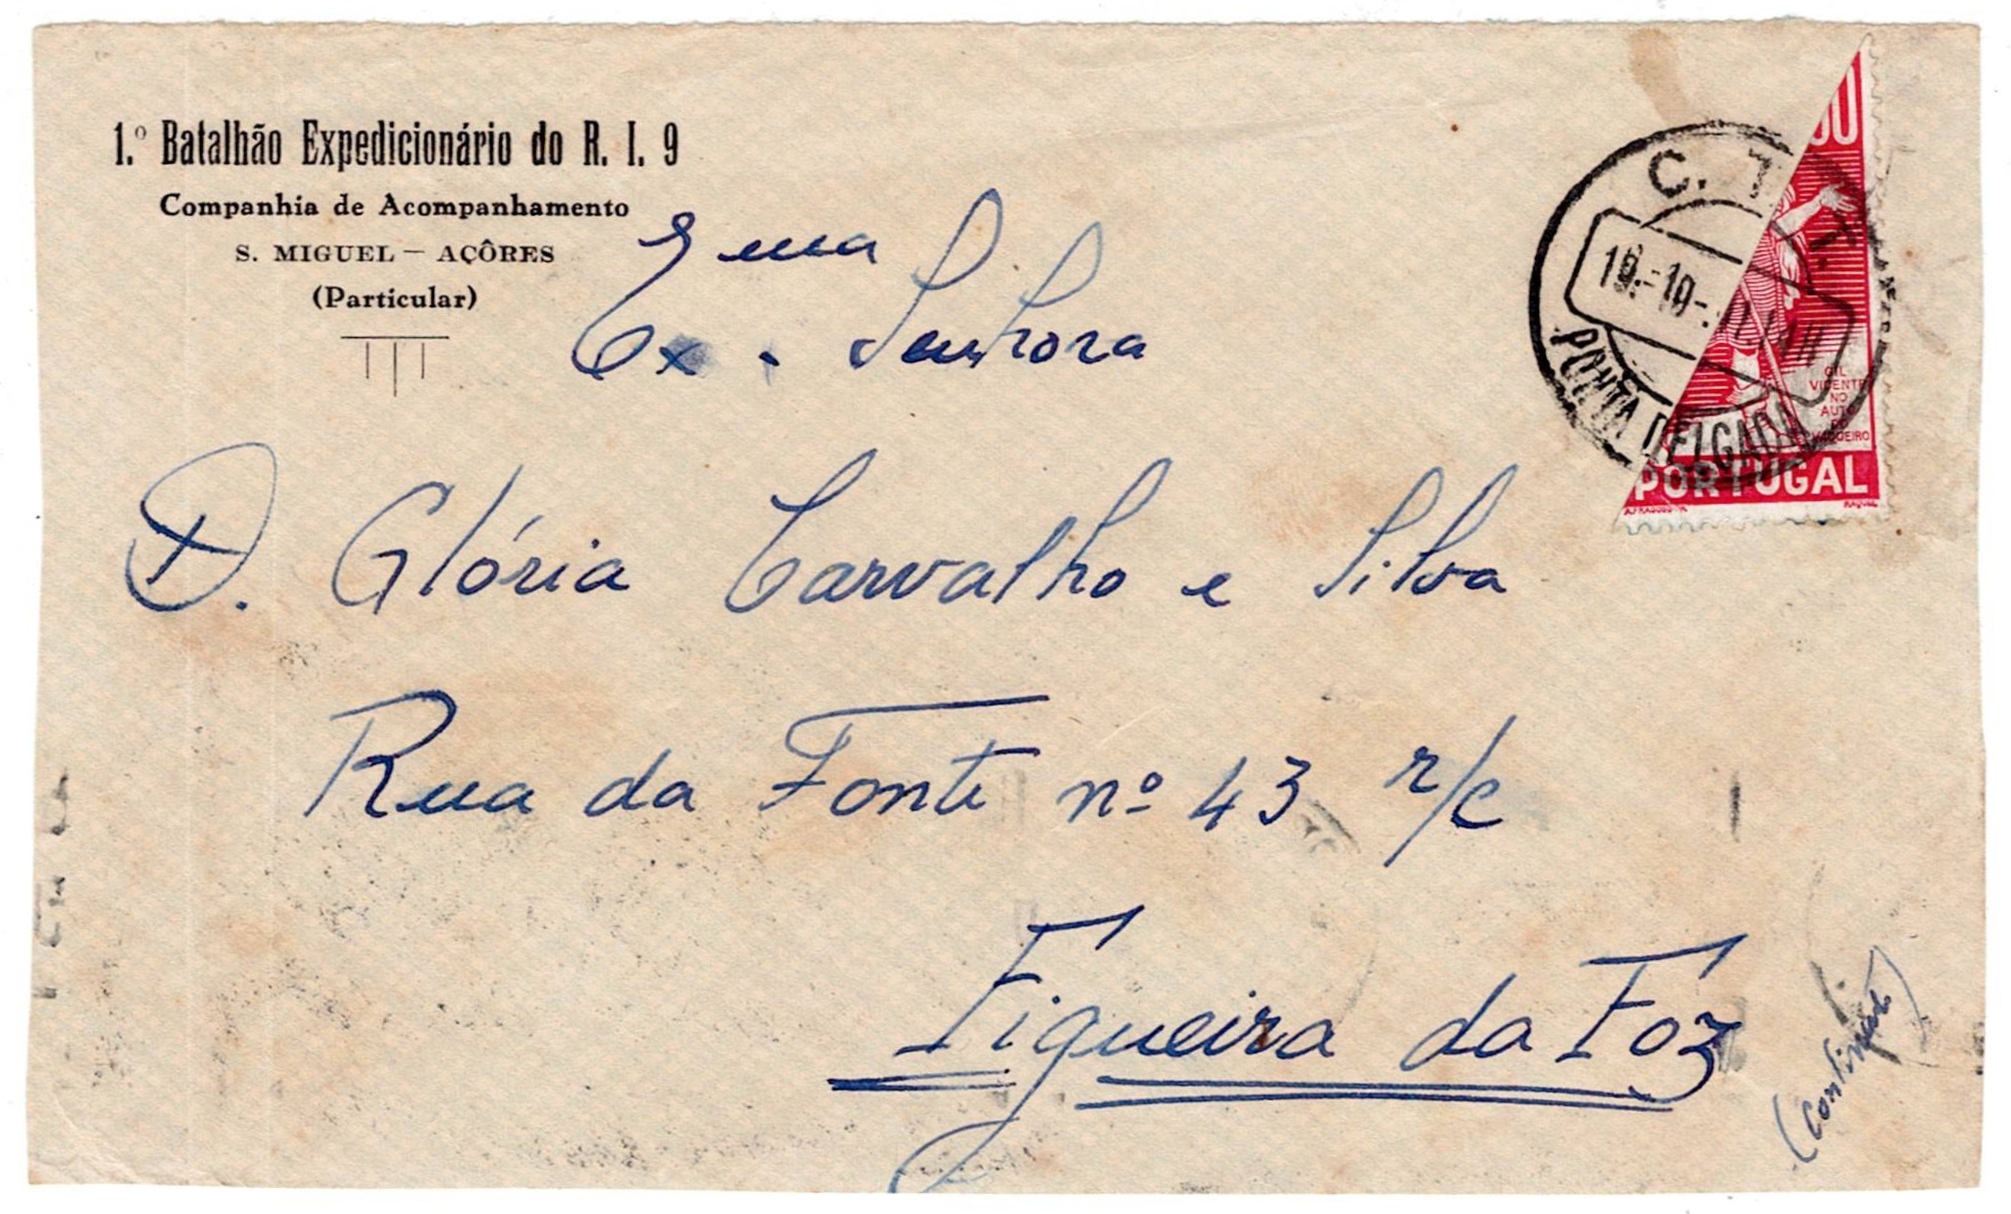 1.º Batalhão Expedicionário do R. I. 9
Companhia de Acompanhamento
S. MIGUEL — AÇÔRES
(Particular)
Ex.ma Senhora
D. Glória Carvalho e Silva
Rua da Fonte nº 43 r/c
Figueira da Foz
(Continente)
C. T. T.
PONTA DELGADA
GIL
VICENTE
NO
AUTO
DO
VAQUEIRO
PORTUGAL